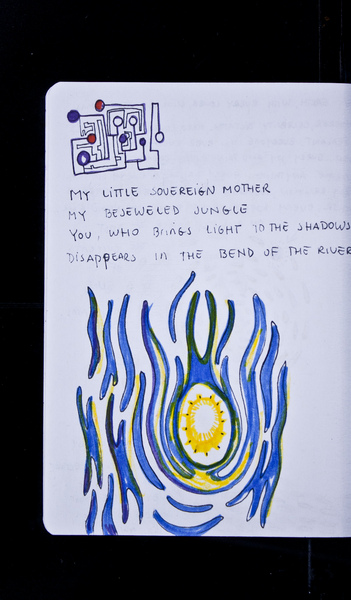 MY LITTLE SOVEREIGN MOTHER
MY BEJEWELED JUNGLE
YOU, WHO BRINGS LIGHT TO THE SHADOWS
DISAPPEARS IN THE BEND OF THE RIVER